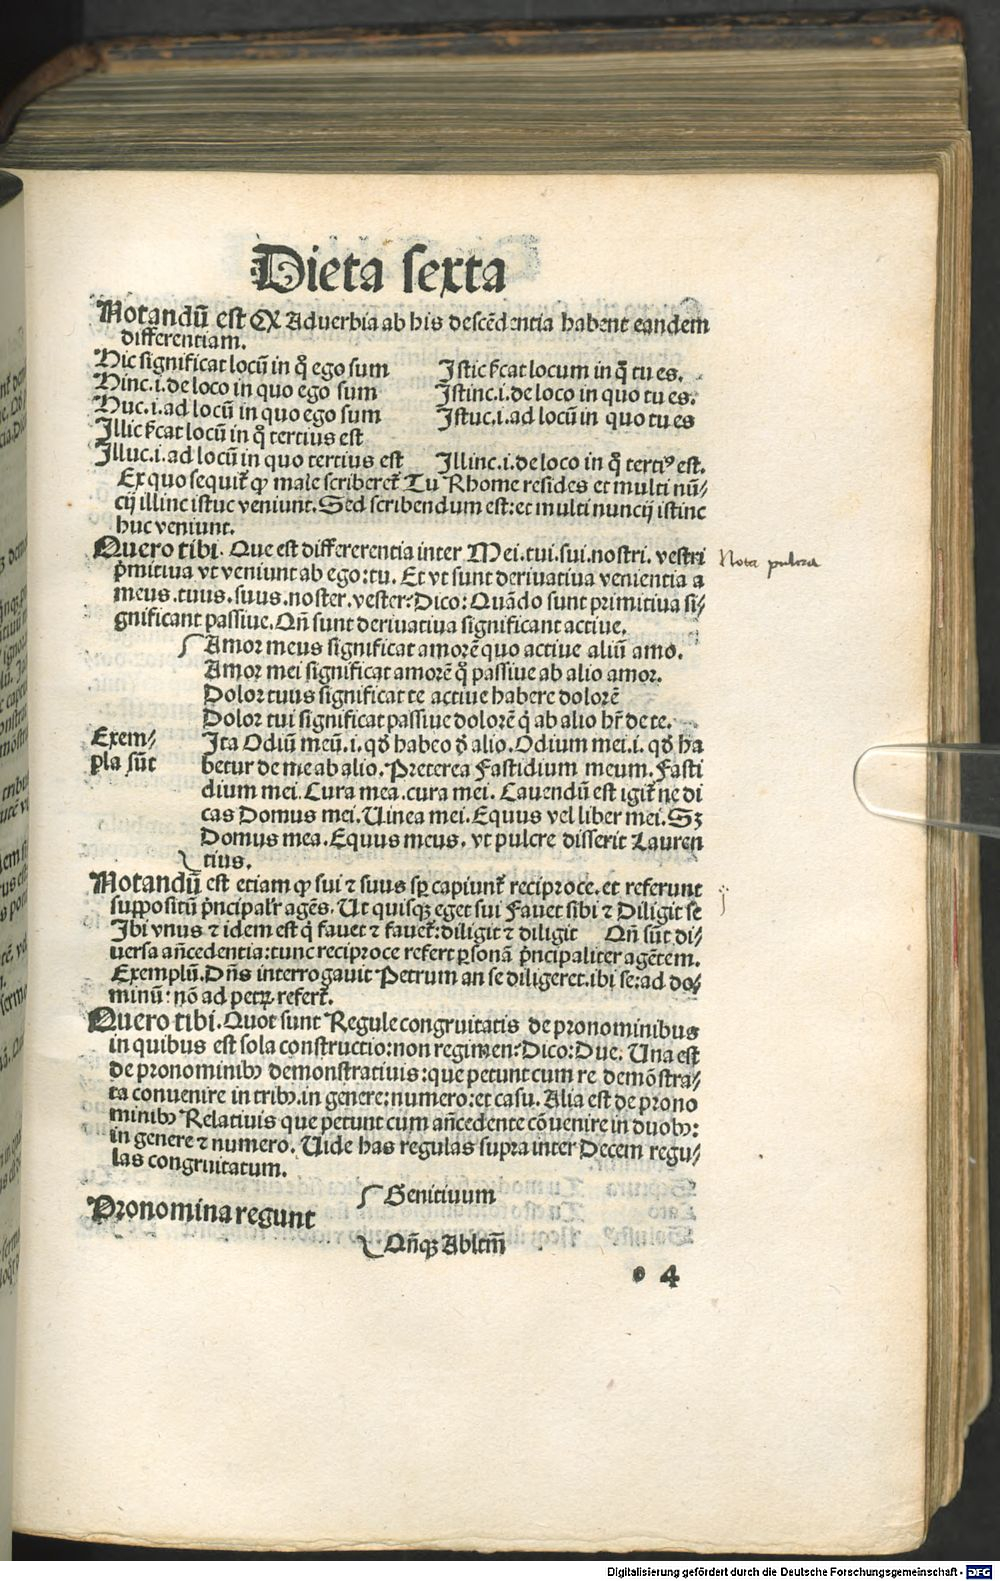 Dieta sexta
Notandū est Qꝫ Aduerbia ab his descēdentia habent eandem
differentiam.
Hic significat locū in q̄ ego sum
Hinc.i.de loco in quo ego sum
Huc.i.ad locū in quo ego sum
Illic ſ̄cat locū in q̄ tertius est
Illuc.i.ad locū in quo tertius est
Istic ſ̄cat locum in q̄ tu es.
Istinc.i.de loco in quo tu es.
Istuc.i.ad locū in quo tu es
Illinc.i.de loco in q̄ tertiꝰ est.
Ex quo sequit̃ ꝙ male scriberet̃ Tu Rhome resides et multi nū⸗
cij illinc istuc veniunt. Sed scribendum est: et multi nuncij istinc
huc veniunt.
Quero tibi. Que est differerentia inter Mei.tui.sui.nostri.vestri
p̄mitiua vt veniunt ab ego:tu. Et vt sunt deriuatiua venientia a
meus.tuus.suus.noster.vester: Dico: Quādo sunt primitiua si⸗
gnificant passiue. Qñ sunt deriuatiua significant actiue.
Amor meus significat amorē quo actiue aliū amo.
Amor mei significat amorē q̄ passiue ab alio amor.
Dolor tuus significat te actiue habere dolorē
Dolor tui significat passiue dolorē q̄ ab alio hr̄ de te.
Exem⸗
pla sūt
Ita Odiū meū.i. qđ habeo đ alio. Odium mei.i. qđ ha
betur de me ab alio. Preterea Fastidium meum. Fasti
dium mei. Cura mea. cura mei. Cauendū est igit̃ ne di
cas Domus mei. Uinea mei. Equus vel liber mei. Sꝫ
Domus mea. Equus meus. vt pulcre disserit Lauren
tius.
Notandū est etiam ꝙ sui ⁊ suus sꝑ capiunt̃ reciproce. et referunt
suppositū p̄ncipalr̃ agēs. Ut quisqꝫ eget sui Fauet sibi ⁊ Diligit se
Ibi vnus ⁊ idem est q̇ fauet ⁊ fauet̃: diligit ⁊ diligit Qñ sūt di⸗
uersa añcedentia: tunc reciproce refert ꝑsonā p̄ncipaliter agētem.
Exemplū. Dñs interrogauit Petrum an se diligeret. ibi se: ad do⸗
minū: nō ad petꝝ refert̃.
Quero tibi. Quot sunt Regule congruitatis de pronominibus
in quibus est sola constructio: non regimen: Dico: Due. Una est
de pronominibꝰ demonstratiuis: que petunt cum re demōstra⸗
ta conuenire in tribꝰ. in genere: numero: et casu. Alia est de prono
minibꝰ Relatiuis que petunt cum añcedente cōuenire in duobꝰ:
in genere ⁊ numero. Uide has regulas supra inter Decem regu⸗
las congruitatum.
Genitiuum
Pronomina regunt
Qñqꝫ Ablt̄m̄
o 4
Nota pulcra
Digitalisierung gefördert durch die Deutsche Forschungsgemeinschaft - DFG